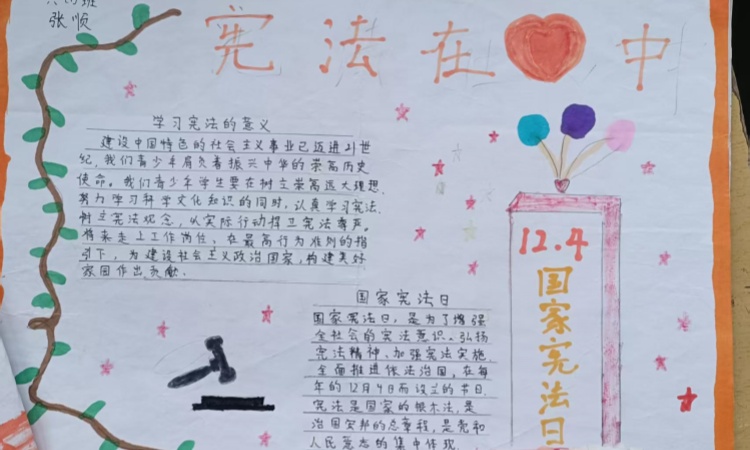 张顺
宪法在中
学习宪法的意义
建设中国特色的社会主义事业已迈进21世
纪,我们青少年肩负着振兴中华的崇高历史
使命。我们青少年学生要在树立崇高远大理想,
努力学习科学文化知识的同时,认真学习宪法,
树立宪法观念,以实际行动捍卫宪法尊严。
将来走上工作岗位、在最高行为准则的指
引下,为建设社会主义政治国家,构建美好
家园作出贡献.
国家宪法日
国家宪法日,是为了增强
全社会的宪法意识、弘扬
宪法精神、加强宪法实施.
全面推进依法治国,在每
年的12月4日而设立的节日.
宪法是国家的根本法,是
治国安邦的总章程,是党和
人民意志的集中体现.
12.4
国家宪法日